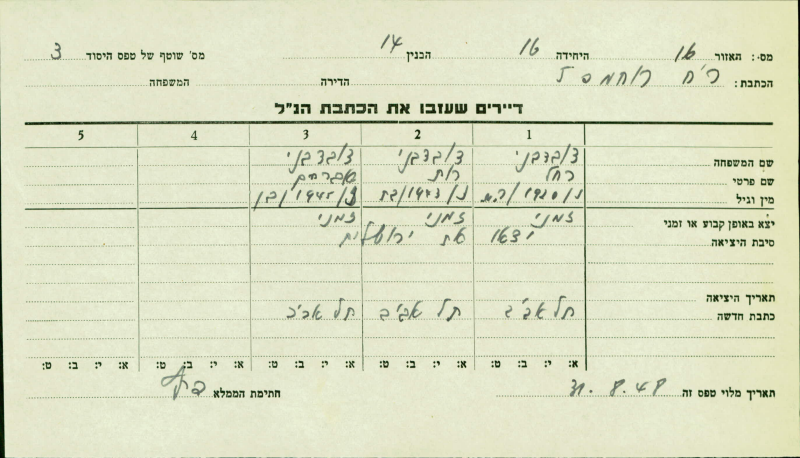 מס׳: האזור 16 היחידה 16 הבנין 14 מס׳ שוטף של טפס היסוד 3
הכתבת: הדירה המשפחה
דיירים שעזבו את הכתבת הנ"ל
1 2 3 4 5
שם המשפחה
שם פרטי רחל רות אברהם
מין וגיל
יצא באופן קבוע או זמני זמני זמני זמני
סיבת היציאה יצאו את ירושלים
תאריך היציאה
כתבת חדשה תל אביב תל אביב תל אביב
א: י: ב: ט: א: י: ב: ט: א: י: ב: ט: א: י: ב: ט: א: י: ב: ט:
תאריך מלוי טפס זה 31.8.48 חתימת הממלא